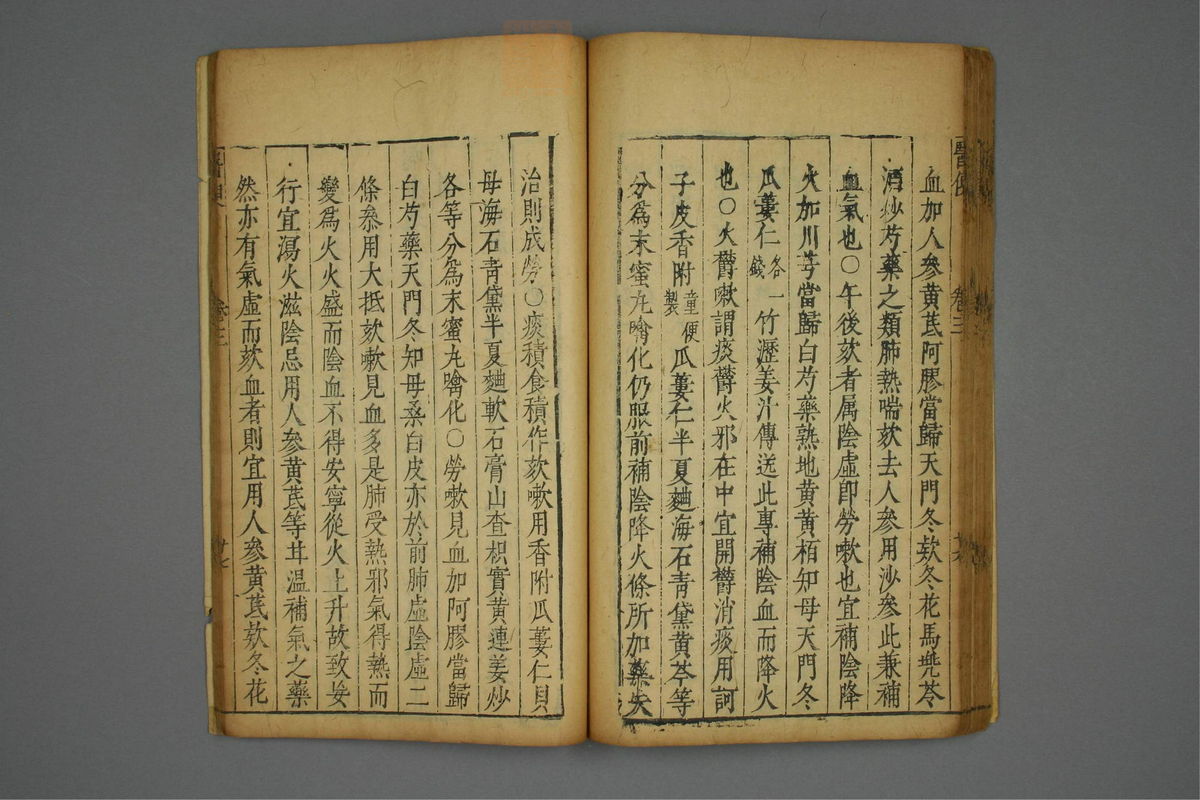 血加人參黃芪阿膠當歸天門冬欬冬花馬兠苓
酒炒芍藥之類肺熱喘欬去人參用沙參此兼補
血氣也〇午後欬者属陰虛卽勞嗽也宜補陰降
火加川芎當歸白芍藥熟地黃黃栢知母天門冬
瓜蔞仁各一錢竹瀝姜汁傳送此專補陰血而降火
也〇火欝嗽謂痰欝火邪在中宜開欝消痰用訶
子皮香附童便製瓜蔞仁半夏麯海石青黛黃芩等
分爲末蜜丸噙化仍服前補陰降火條所加藥失
治則成勞〇痰積食積作欬嗽用香附瓜蔞仁貝
母海石青黛半夏麯軟石膏山查枳實黃連姜炒
各等分爲末蜜丸噙化〇勞嗽見血加阿膠當歸
白芍藥天門冬知母桑白皮亦於前肺虛陰虛二
條叅用大抵欬嗽見血多是肺受熱邪氣得熱而
變爲火火盛而陰血不得安寧從火上升故致妄
行宜瀉火滋陰忌用人參黃芪等甘温補氣之藥
然亦有氣虛而欬血者則宜用人參黃芪欬冬花
醫便
卷三
廿七